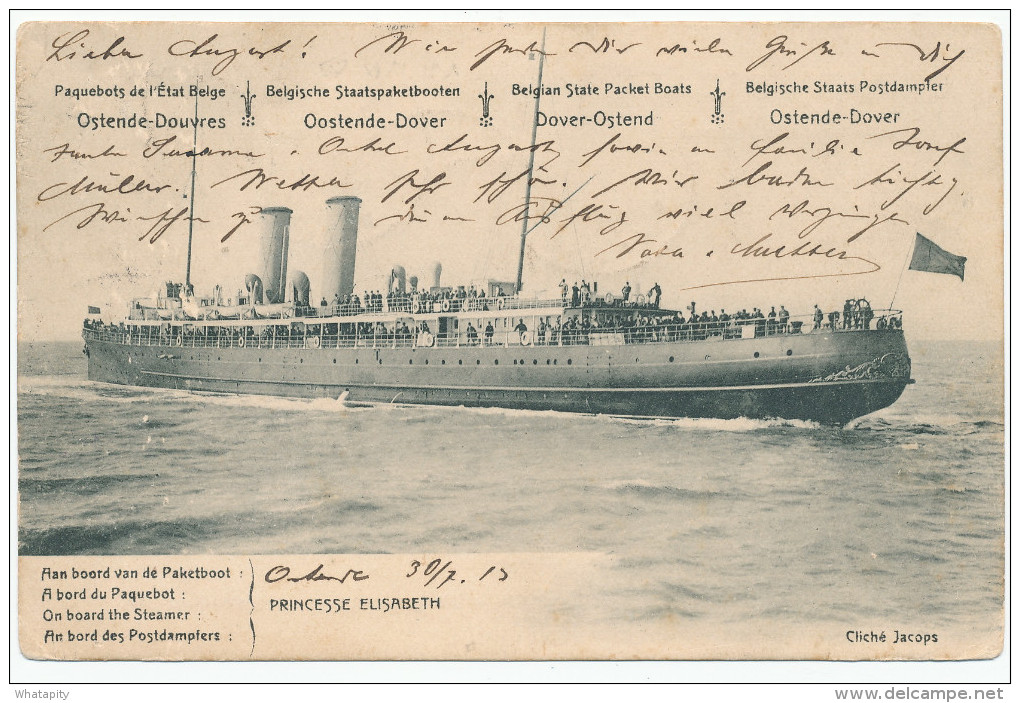 Lieber August! Wir senden Dir viele Grüße an Dich
Paquebots de l'État Belge
Ostende-Douvres
Belgische Staatspaketbooten
Oostende-Dover
Belgian State Packet Boats
Dover-Ostend
Belgische Staats Postdampfer
Ostende-Dover
Tante Susanna u. Onkel August, sowie an Familie Josef
Müller. Wetter sehr schön. Wir baden
viel Vergnügen
Aan boord van de Paketboot :
A bord du Paquebot :
On board the Steamer :
An bord des Postdampfers :
Ostende 30/7. 13
PRINCESSE ELISABETH
Cliché Jacops
Whatapity
www.delcampe.net